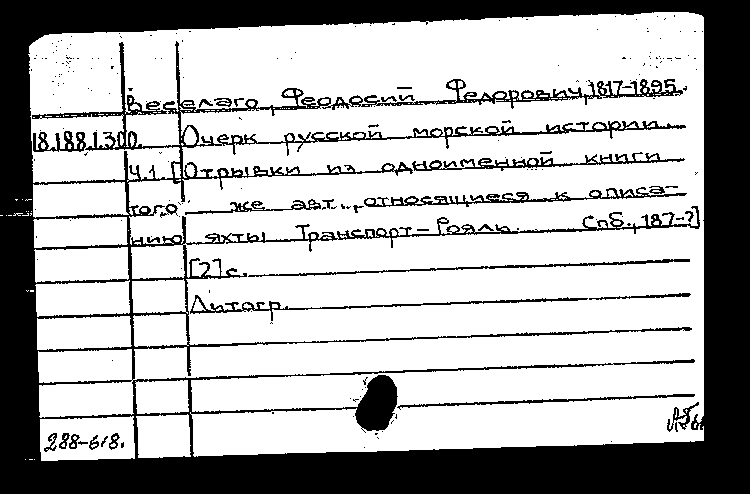 Веселаго, Феодосий Федорович, 1817-1895.
18.188.1.300. Очерк русской морской истории.
Ч.1. [Отрывки из одноименной книги
того же авт., относящиеся к описа-
нию яхты Транспорт-Рояль. Спб., 187-?]
[2] с.
Литогр.
288-618.